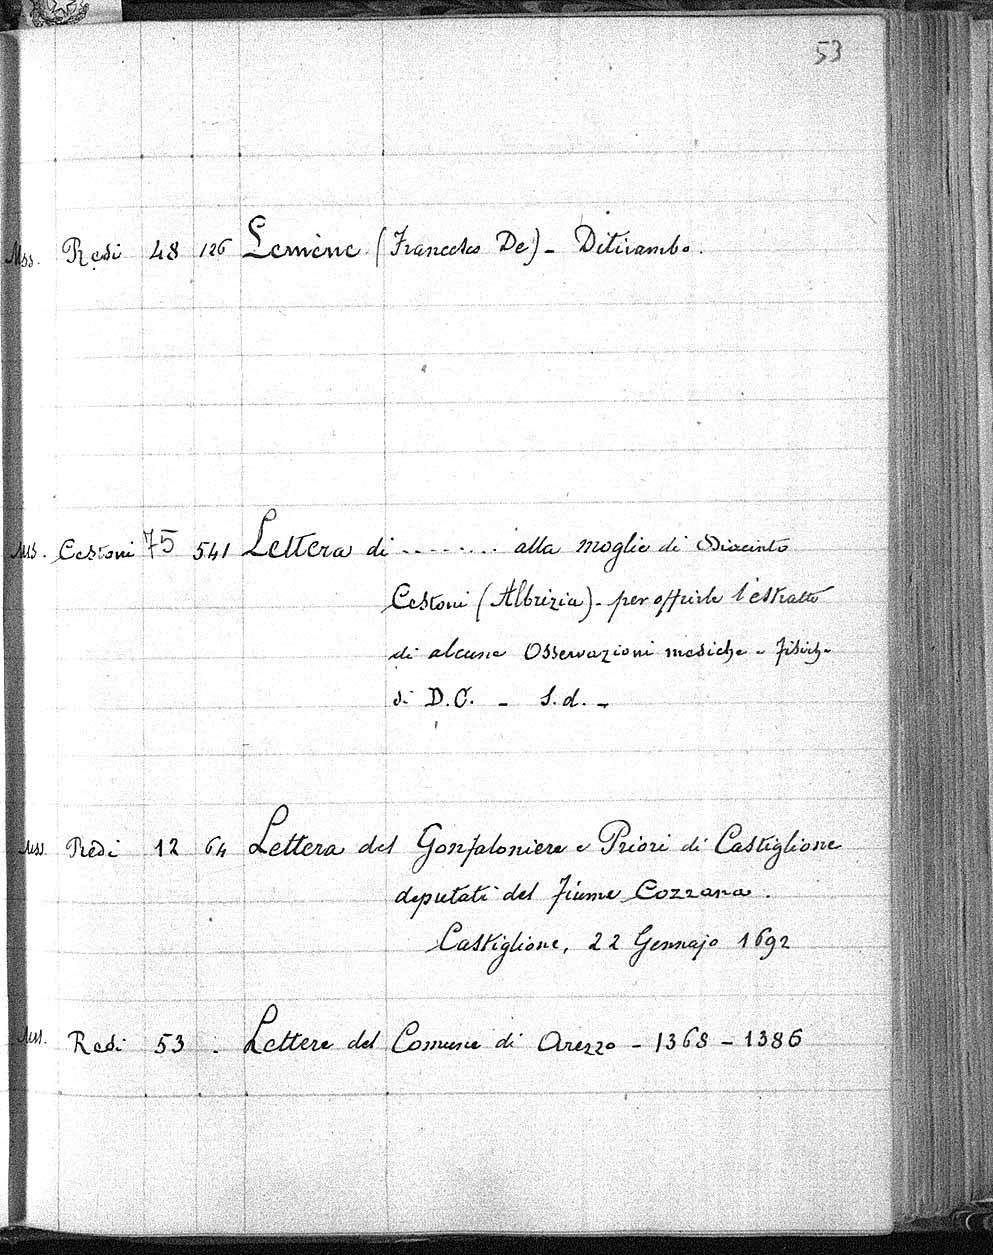 53
Mss. Redi 48 126 Lemène (Francesco De) - Ditirambo.
Mss. Cestoni 75 541 Lettera di ........ alla moglie di Diacinto
Cestoni (Albrizia) - per offrirle l'estratto
di alcune Osservazioni mediche e fisiche
di D.C. - S.d. -
Mss. Redi 12 64 Lettera del Gonfaloniere e Priori di Castiglione
deputati del fiume Cozzana.
Castiglione, 22 Gennajo 1692
Mss. Redi 53 . Lettere del Comune di Arezzo - 1368 - 1386